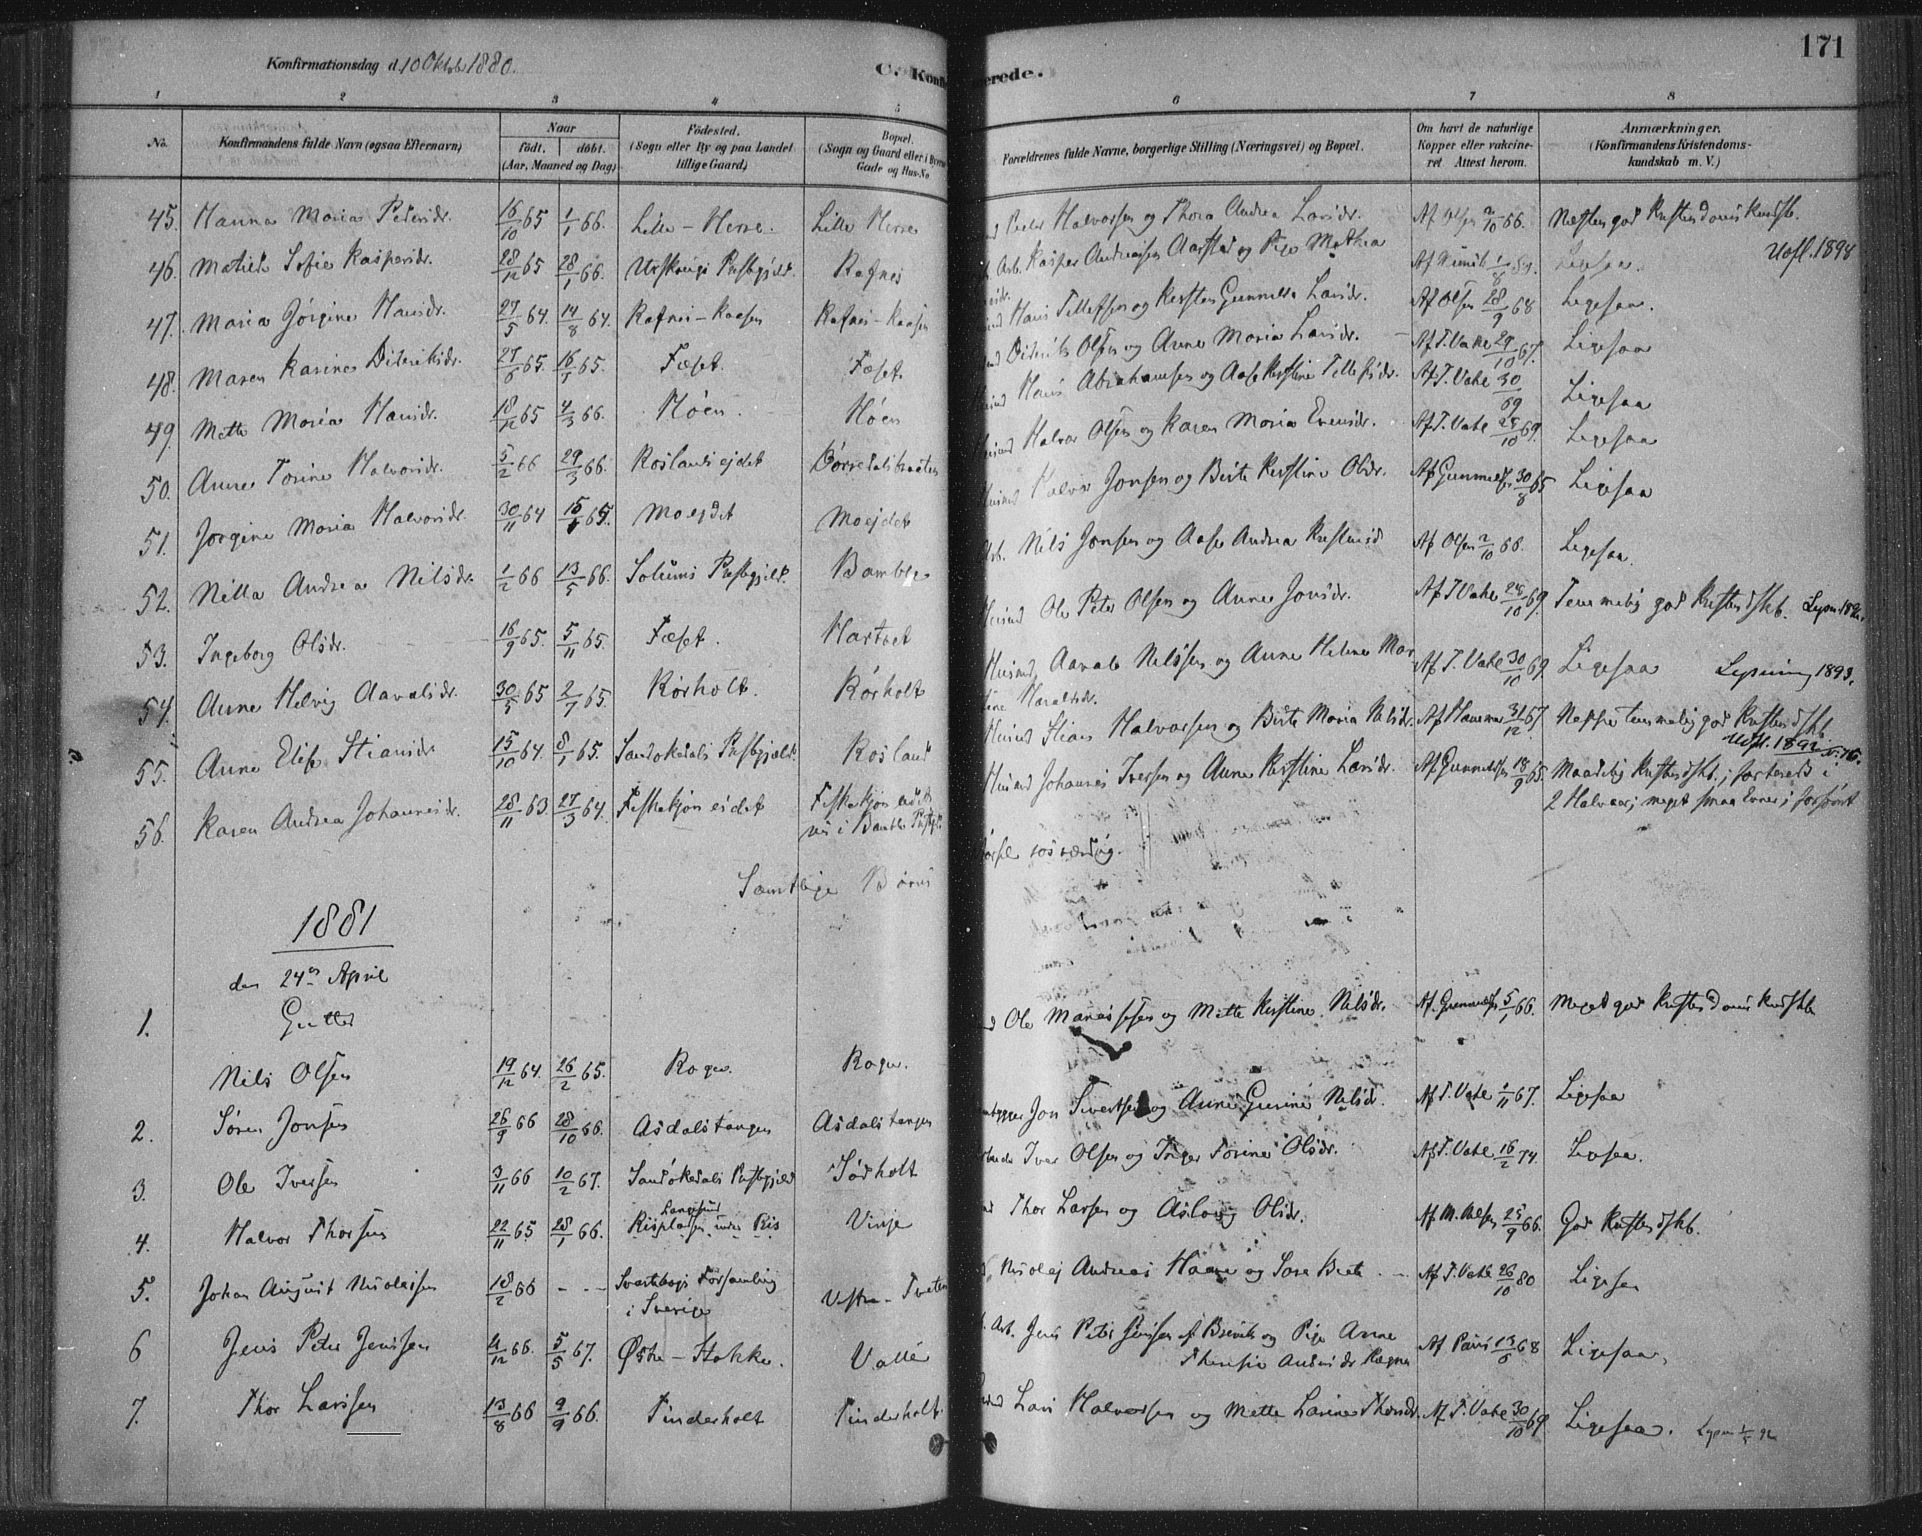 171
Konfirmationsdag d. 10 Oktob 1880.
C. Konfirmerede.
1 2 3 4 5 6 7 8
No. Konfirmandens fulde Navn (ogsaa Efternavn) Naar født. døbt. (Aar, Maaned og Dag) Fødested. (Sogn eller By og paa Landet tillige Gaard) Bopæl. (Sogn og Gaard eller i Byerne Gade og Hus-No Forældrenes fulde Navne, borgerlige Stilling (Næringsvei) og Bopæl. Om havt de naturlige Kopper eller vakcineret. Attest herom. Anmærkninger. (Konfirmandens Kristendomskundskab m. V.)
45. Hanna Maria Pedersdr. 16/10 65 1/1 66. Lille-Herre. Lille Herre Peder Halvorsen og Thora Andrea Larsdr. Af Olsen 2/10 66. Næsten god Kristendomskundsk.
Udfl. 1898
46. Matilde Sofie Kaspersdr. 28/12 65 28/1 66. Urskougs Præstegjeld. Rafnes Arb. Kasper Andreasen Aarstad og Pige Mathea Ligesaa.
47. Maria Jørgine Hansdr. 27/5 64. 14/8 64. Rafnes-Kaasen Rafnes-Kaasen Hans Tellefsen og Kirsten Gunnilda Larsdr. Af Olsen 28/9 68 Ligesaa.
48. Maren Karine Dideriksdr. 27/6 65. 16/5 65. Fæset. Fæset Diderik Olsen og Anne Maria Larsdr. Af T. Vahl 29/10 67. Ligesaa
49. Mette Maria Hansdr. 18/12 65 4/3 66. Høen. Høen Hans Abrahamsen og Aase Kirstine Tellefsdr. Af T. Vahl 30/69 Ligesaa
50. Anne Torine Halvorsdr. 5/2 66 29/3 66. Roslandsejdet Dørredalsbraaten Halvor Olsen og Karen Maria Evensdr. Af T. Vahl 25/10 69. Ligesaa
51. Jørgine Maria Halvorsdr. 30/11 64 15/1 65. Moejdet Moejdet Halvor Jonsen og Birte Kirstine Olsdr. Af Gunnulfsen 30/8 65 Ligesaa
52. Nilla Andrea Nilsdr. 1/2 66 13/5 66. Solums Præstegjeld. Bamble Arb. Nils Jonsen og Aase Andrea Af Olsen 2/10 66. Ligesaa.
53. Ingeborg Olsdr. 16/9 65. 5/11 65. Fæset. Hartvet Husmd Ole Peter Olsen og Anne Jonsdr. Af T Vahl 24/10 69. Temmelig god Kristendsk.
54. Anne Helvig Aavalsdr. 30/5 65 2/7 65. Rørholt. Rørholt Husmd. Aavale Nilssen og Anne Helene Mar- Af T. Vahl 30/10 69. Ligesaa Lysning 1893.
tine Haraldsdr.
55. Anne Elise Stiansdr. 15/10 64. 8/1 65. Sandøkedals Præstegjeld. Rosland Husmd Stian Halvorsen og Birte Maria Nilsdr. 31/12 67 Neppe temmelig god Kristendsk.
Udfl. 1892
56. Karen Andrea Johannesdr. 28/11 63 27/3 64. Fiskekjøn eidet Fiskekjøn eidet Husmd Johannes Iversen og Anne Kirstine Larsdr. Af Gunnulfsen 18/9 65. Maadelig Kristendsk.; fortsered i
i Bamble 2 Halvaar; meget smaa Evner;
Samtlige Børns
1881
den 24de April
Gutter
1. Nils Olsen 19/12 64. 26/2 65. Roger. Roger. Ole Manassesen og Mette Kirstine Nilsdr. Af Gunnulfs. 5/1 66. Meget god Kristendomskundskb
2. Søren Jonsen 26/9 66 28/10 66. Asdalstangen Asdalstangen Jon Sivertsen og Anne Gurine Nilsdr. Af T. Vahl 1/11 67. Ligesaa
3. Ole Iversen 3/11 66 10/2 67. Sandøkedals Præstegjeld Tørholt Iver Olsen og Inger Torine Olsdr. Af T. Vahl 16/2 74. Ligesaa.
4. Halvor Thorsen 22/11 65 28/1 66. Langesund Risplassen under Ris Vinje Thor Larsen og Aslaug Olsdr. Af M. Nilsen 25/9 66. God Kristendskb.
5. Johan August Nicolaisen 18/2 66 - - - Svarteborgs Forsamling i Sverige Vestre-Tveten Nicolaj Andreas Haave og Sara Beate. Af T. Vahl 26/10 80 Ligesaa
6 Jens Peter Jenssen 4/12 66. 5/5 67. Østre-Stokke. Valle Arb. Jens Peter Jenssen af Brevik og Pige Anne 13/6 68 Ligesaa.
7. Thor Larssen 13/8 66 9/9 66. Tinderholt Tinderholt Lars Halvorsen og Mette Larine Thorsdr. Af T. Vahl 30/10 69 Ligesaa.